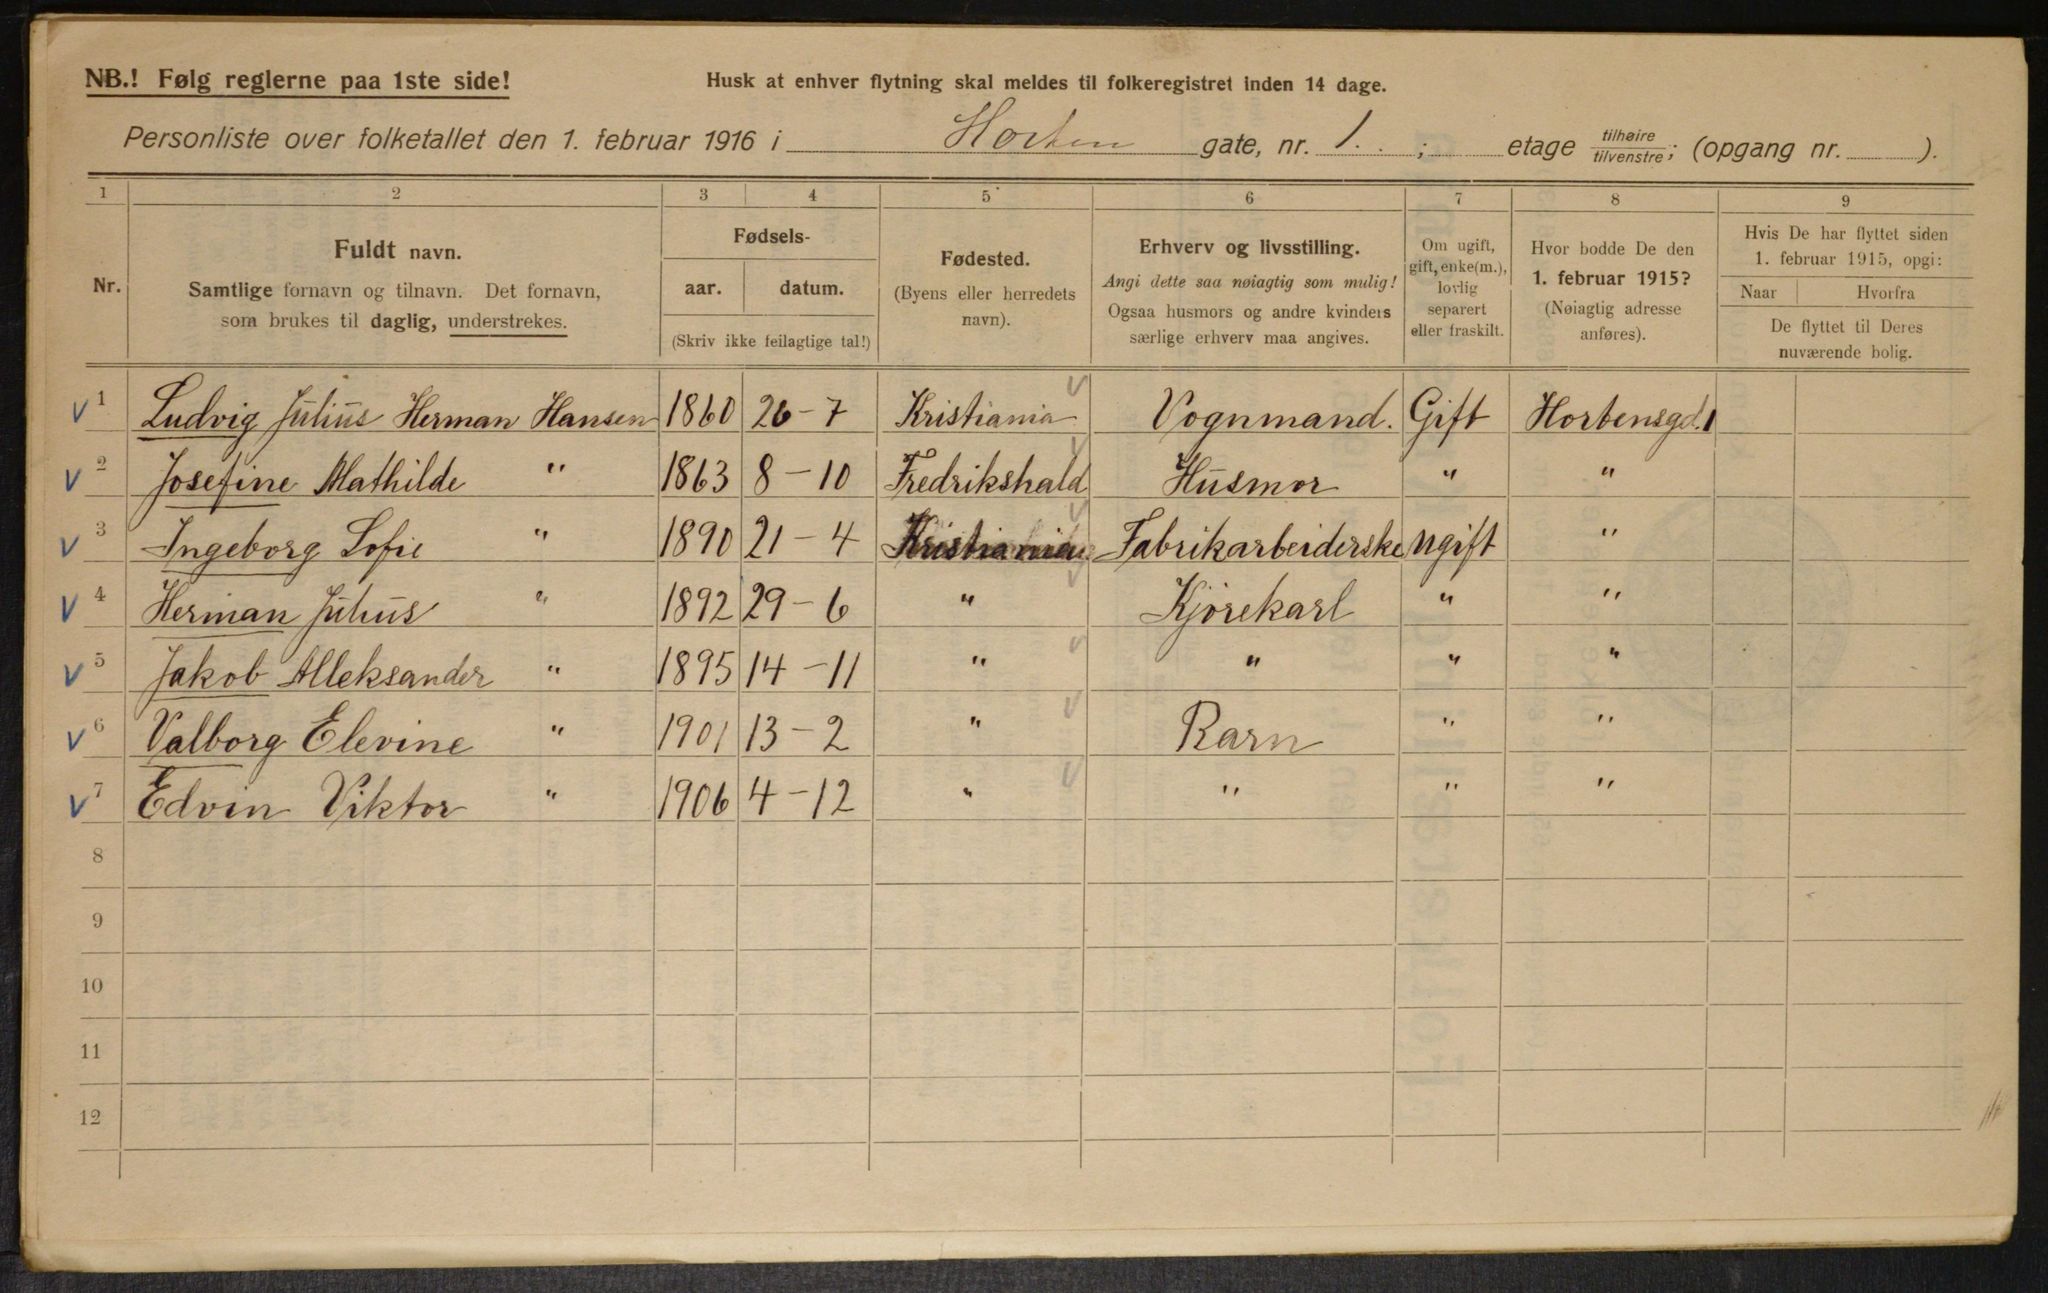 NB.! Følg reglerne paa 1ste side!
Husk at enhver flytning skal meldes til folkeregistret inden 14 dage.
Personliste over folketallet den 1. februar 1916 i Horten gate, nr. 1. ; etage tilhøire/tilvenstre; (opgang nr. ).
1 2 3 4 5 6 7 8 9
Nr.
Fuldt navn.
Samtlige fornavn og tilnavn. Det fornavn,
som brukes til daglig, understrekes.
Fødsels-
aar. datum.
(Skriv ikke feilagtige tal!)
Fødested.
(Byens eller herredets
navn).
Erhverv og livsstilling.
Angi dette saa nøiagtig som mulig!
Ogsaa husmors og andre kvinders
særlige erhverv maa angives.
Om ugift,
gift, enke(m.),
lovlig
separert
eller fraskilt.
Hvor bodde De den
1. februar 1915?
(Nøiagtig adresse
anføres).
Hvis De har flyttet siden
1. februar 1915, opgi:
Naar Hvorfra
De flyttet til Deres
nuværende bolig.
1 Ludvig Julius Herman Hansen 1860 26-7 Kristiania Vognmand. Gift Hortensgd. 1
2 Josefine Mathilde " 1863 8-10 Fredrikshald Husmor " "
3 Ingeborg Sofie " 1890 21-4 Kristiania Fabrikarbeiderske Ugift "
4 Herman Julius " 1892 29-6 " Kjørekarl " "
5 Jakob Alleksander " 1895 14-11 " " " "
6 Valborg Elevine " 1901 13-2 " Barn " "
7 Edvin Viktor " 1906 4-12 " " " "
8
9
10
11
12